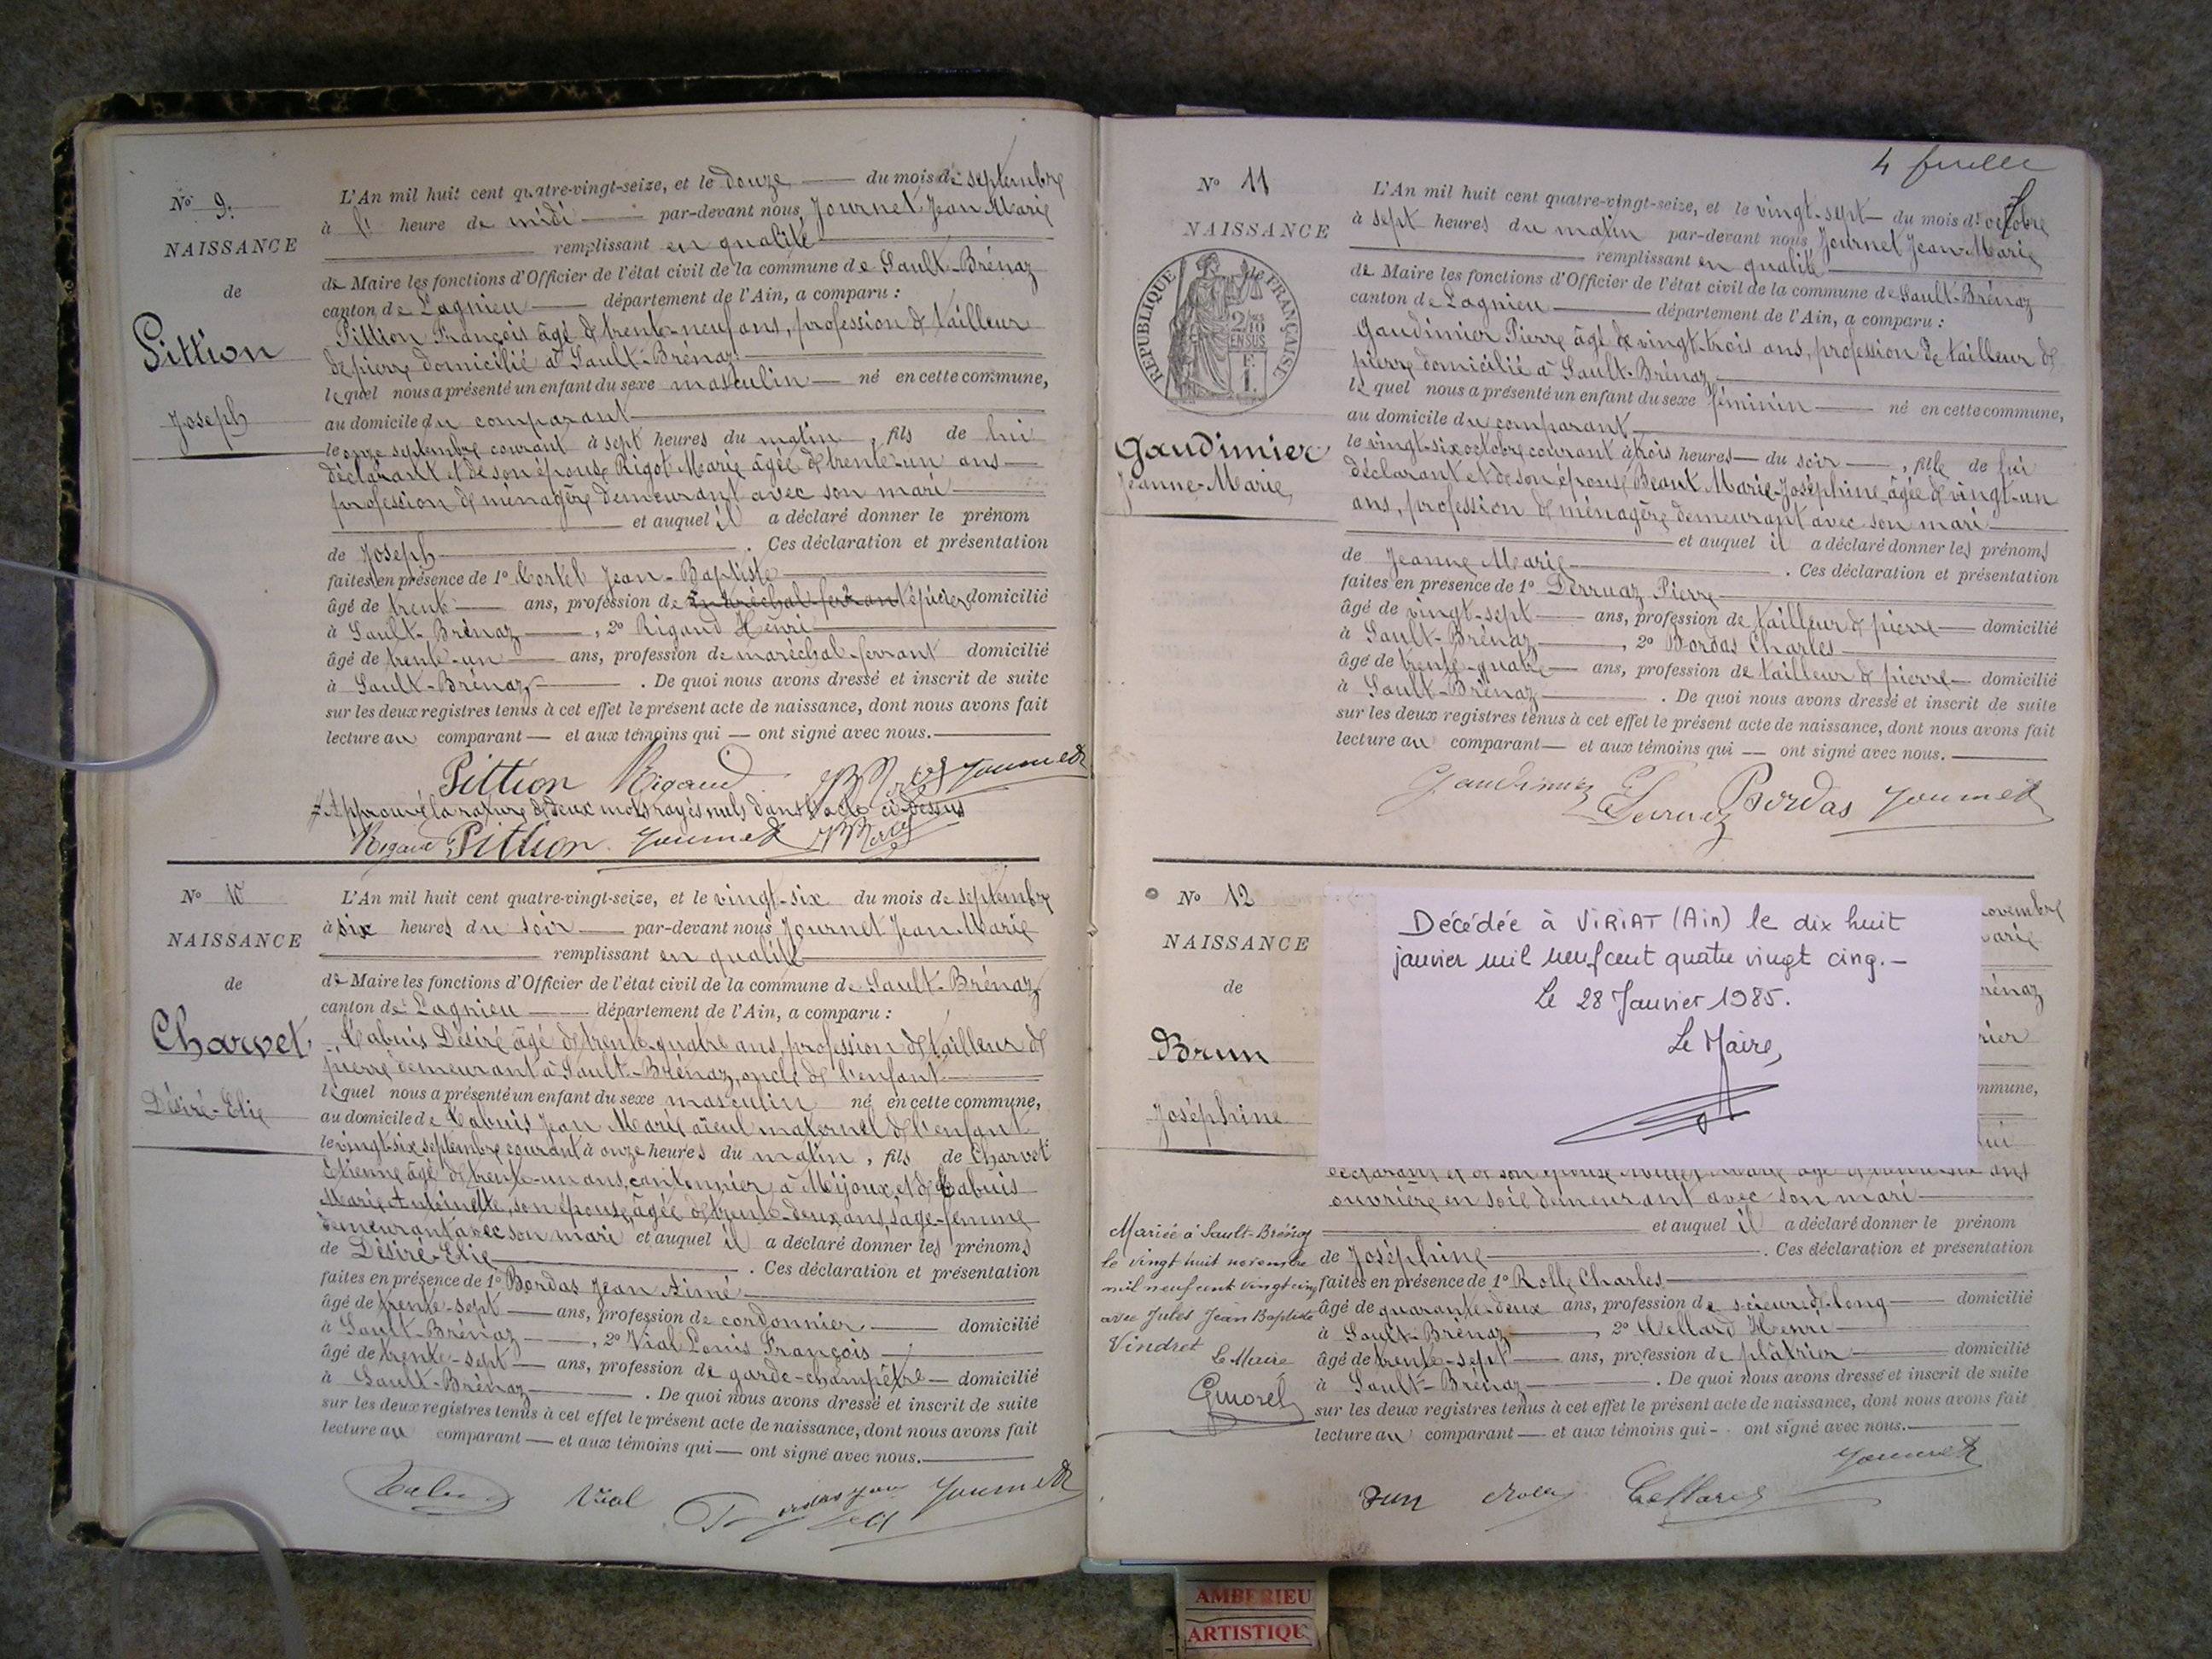 N° 9.
NAISSANCE
de
Pittion
Joseph
L'An mil huit cent quatre-vingt-seize, et le douze du mois de septembre
à l' heure de midi par-devant nous, Journet Jean Marie
remplissant en qualité
de Maire les fonctions d'Officier de l'état civil de la commune de Sault-Brénaz
canton de Lagnieu département de l'Ain, a comparu :
Pittion François âgé de trente-neuf ans, profession de tailleur
de pierre domicilié à Sault-Brénaz
lequel nous a présenté un enfant du sexe masculin né en cette commune,
au domicile du comparant
le onze septembre courant à sept heures du matin, fils de lui
déclarant et de son épouse Rigot Marie âgée de trente-un ans
profession de ménagère demeurant avec son mari
et auquel il a déclaré donner le prénom
de Joseph . Ces déclaration et présentation
faites en présence de 1° Jean-Baptiste
âgé de trente ans, profession de maréchal-ferrant épicier domicilié
à Sault-Brénaz, 2° Rigaud Henri
âgé de trente-un ans, profession de maréchal-ferrant domicilié
à Sault-Brénaz . De quoi nous avons dressé et inscrit de suite
sur les deux registres tenus à cet effet le présent acte de naissance, dont nous avons fait
lecture au comparant et aux témoins qui ont signé avec nous.
Pittion Rigaud Journet
Approuvé la rature de deux mots rayés nuls dans l'acte ci-dessus
Rigaud Pittion Journet
N° 10
NAISSANCE
de
Charvet
Désiré-Elie
L'An mil huit cent quatre-vingt-seize, et le vingt-six du mois de septembre
à six heures du soir par-devant nous Journet Jean Marie
remplissant en qualité
de Maire les fonctions d'Officier de l'état civil de la commune de Sault-Brénaz
canton de Lagnieu département de l'Ain, a comparu :
Cabuis Désiré âgé de trente-quatre ans, profession de tailleur de
pierre demeurant à Sault-Brénaz, oncle de l'enfant
lequel nous a présenté un enfant du sexe masculin né en cette commune,
au domicile de Cabuis Jean Marie aïeul maternel de l'enfant
le vingt-six septembre courant à onze heures du matin, fils de Charvet
Etienne âgé de trente-un ans, cantonnier à Mijoux, et de Cabuis
Marie Antoinette, son épouse, âgée de trente-deux ans, sage-femme
demeurant avec son mari et auquel il a déclaré donner les prénoms
de Désiré-Elie . Ces déclaration et présentation
faites en présence de 1° Bordas Jean Aimé
âgé de trente-sept ans, profession de cordonnier domicilié
à Sault-Brénaz, 2° Vial Louis François
âgé de trente-sept ans, profession de garde-champêtre domicilié
à Sault-Brénaz . De quoi nous avons dressé et inscrit de suite
sur les deux registres tenus à cet effet le présent acte de naissance, dont nous avons fait
lecture au comparant et aux témoins qui ont signé avec nous.
Vial Journet
4 feuille
N° 11
NAISSANCE
REPUBLIQUE FRANÇAISE
2/10 EN SUS
F. 1.
Gaudimier
Jeanne-Marie
L'An mil huit cent quatre-vingt-seize, et le vingt-sept du mois d'octobre
à sept heures du matin par-devant nous Journet Jean-Marie
remplissant en qualité
de Maire les fonctions d'Officier de l'état civil de la commune de Sault-Brénaz
canton de Lagnieu département de l'Ain, a comparu :
Gaudimier Pierre âgé de vingt-trois ans, profession de tailleur de
pierre domicilié à Sault-Brénaz
lequel nous a présenté un enfant du sexe féminin né en cette commune,
au domicile du comparant
le vingt-six octobre courant à trois heures du soir, fille de lui
déclarant et de son épouse Beaux Marie-Joséphine, âgée de vingt-un
ans, profession de ménagère demeurant avec son mari
et auquel il a déclaré donner les prénoms
de Jeanne Marie . Ces déclaration et présentation
faites en présence de 1° Derruaz Pierre
âgé de vingt-sept ans, profession de tailleur de pierre domicilié
à Sault-Brénaz, 2° Bordas Charles
âgé de trente-quatre ans, profession de tailleur de pierre domicilié
à Sault-Brénaz . De quoi nous avons dressé et inscrit de suite
sur les deux registres tenus à cet effet le présent acte de naissance, dont nous avons fait
lecture au comparant et aux témoins qui ont signé avec nous.
Gaudimier Bordas Journet
N° 12
NAISSANCE
de
Brun
Joséphine
Décédée à VIRIAT (Ain) le dix huit
janvier mil neuf cent quatre vingt cinq.
Le 28 Janvier 1985.
Le Maire,
ouvrière en soie demeurant avec son mari
et auquel il a déclaré donner le prénom
de Joséphine . Ces déclaration et présentation
faites en présence de 1° Rolle Charles
âgé de quarante-deux ans, profession de scieur de long domicilié
à Sault-Brénaz, 2° Henri
âgé de trente-sept ans, profession de plâtrier domicilié
à Sault-Brénaz . De quoi nous avons dressé et inscrit de suite
sur les deux registres tenus à cet effet le présent acte de naissance, dont nous avons fait
lecture au comparant et aux témoins qui ont signé avec nous.
Mariée à Sault-Brénaz
le vingt huit novembre
mil neuf cent vingt cinq
avec Jules Jean Baptiste
Vindret
Le Maire
Journet
AMBERIEU
ARTISTIQU